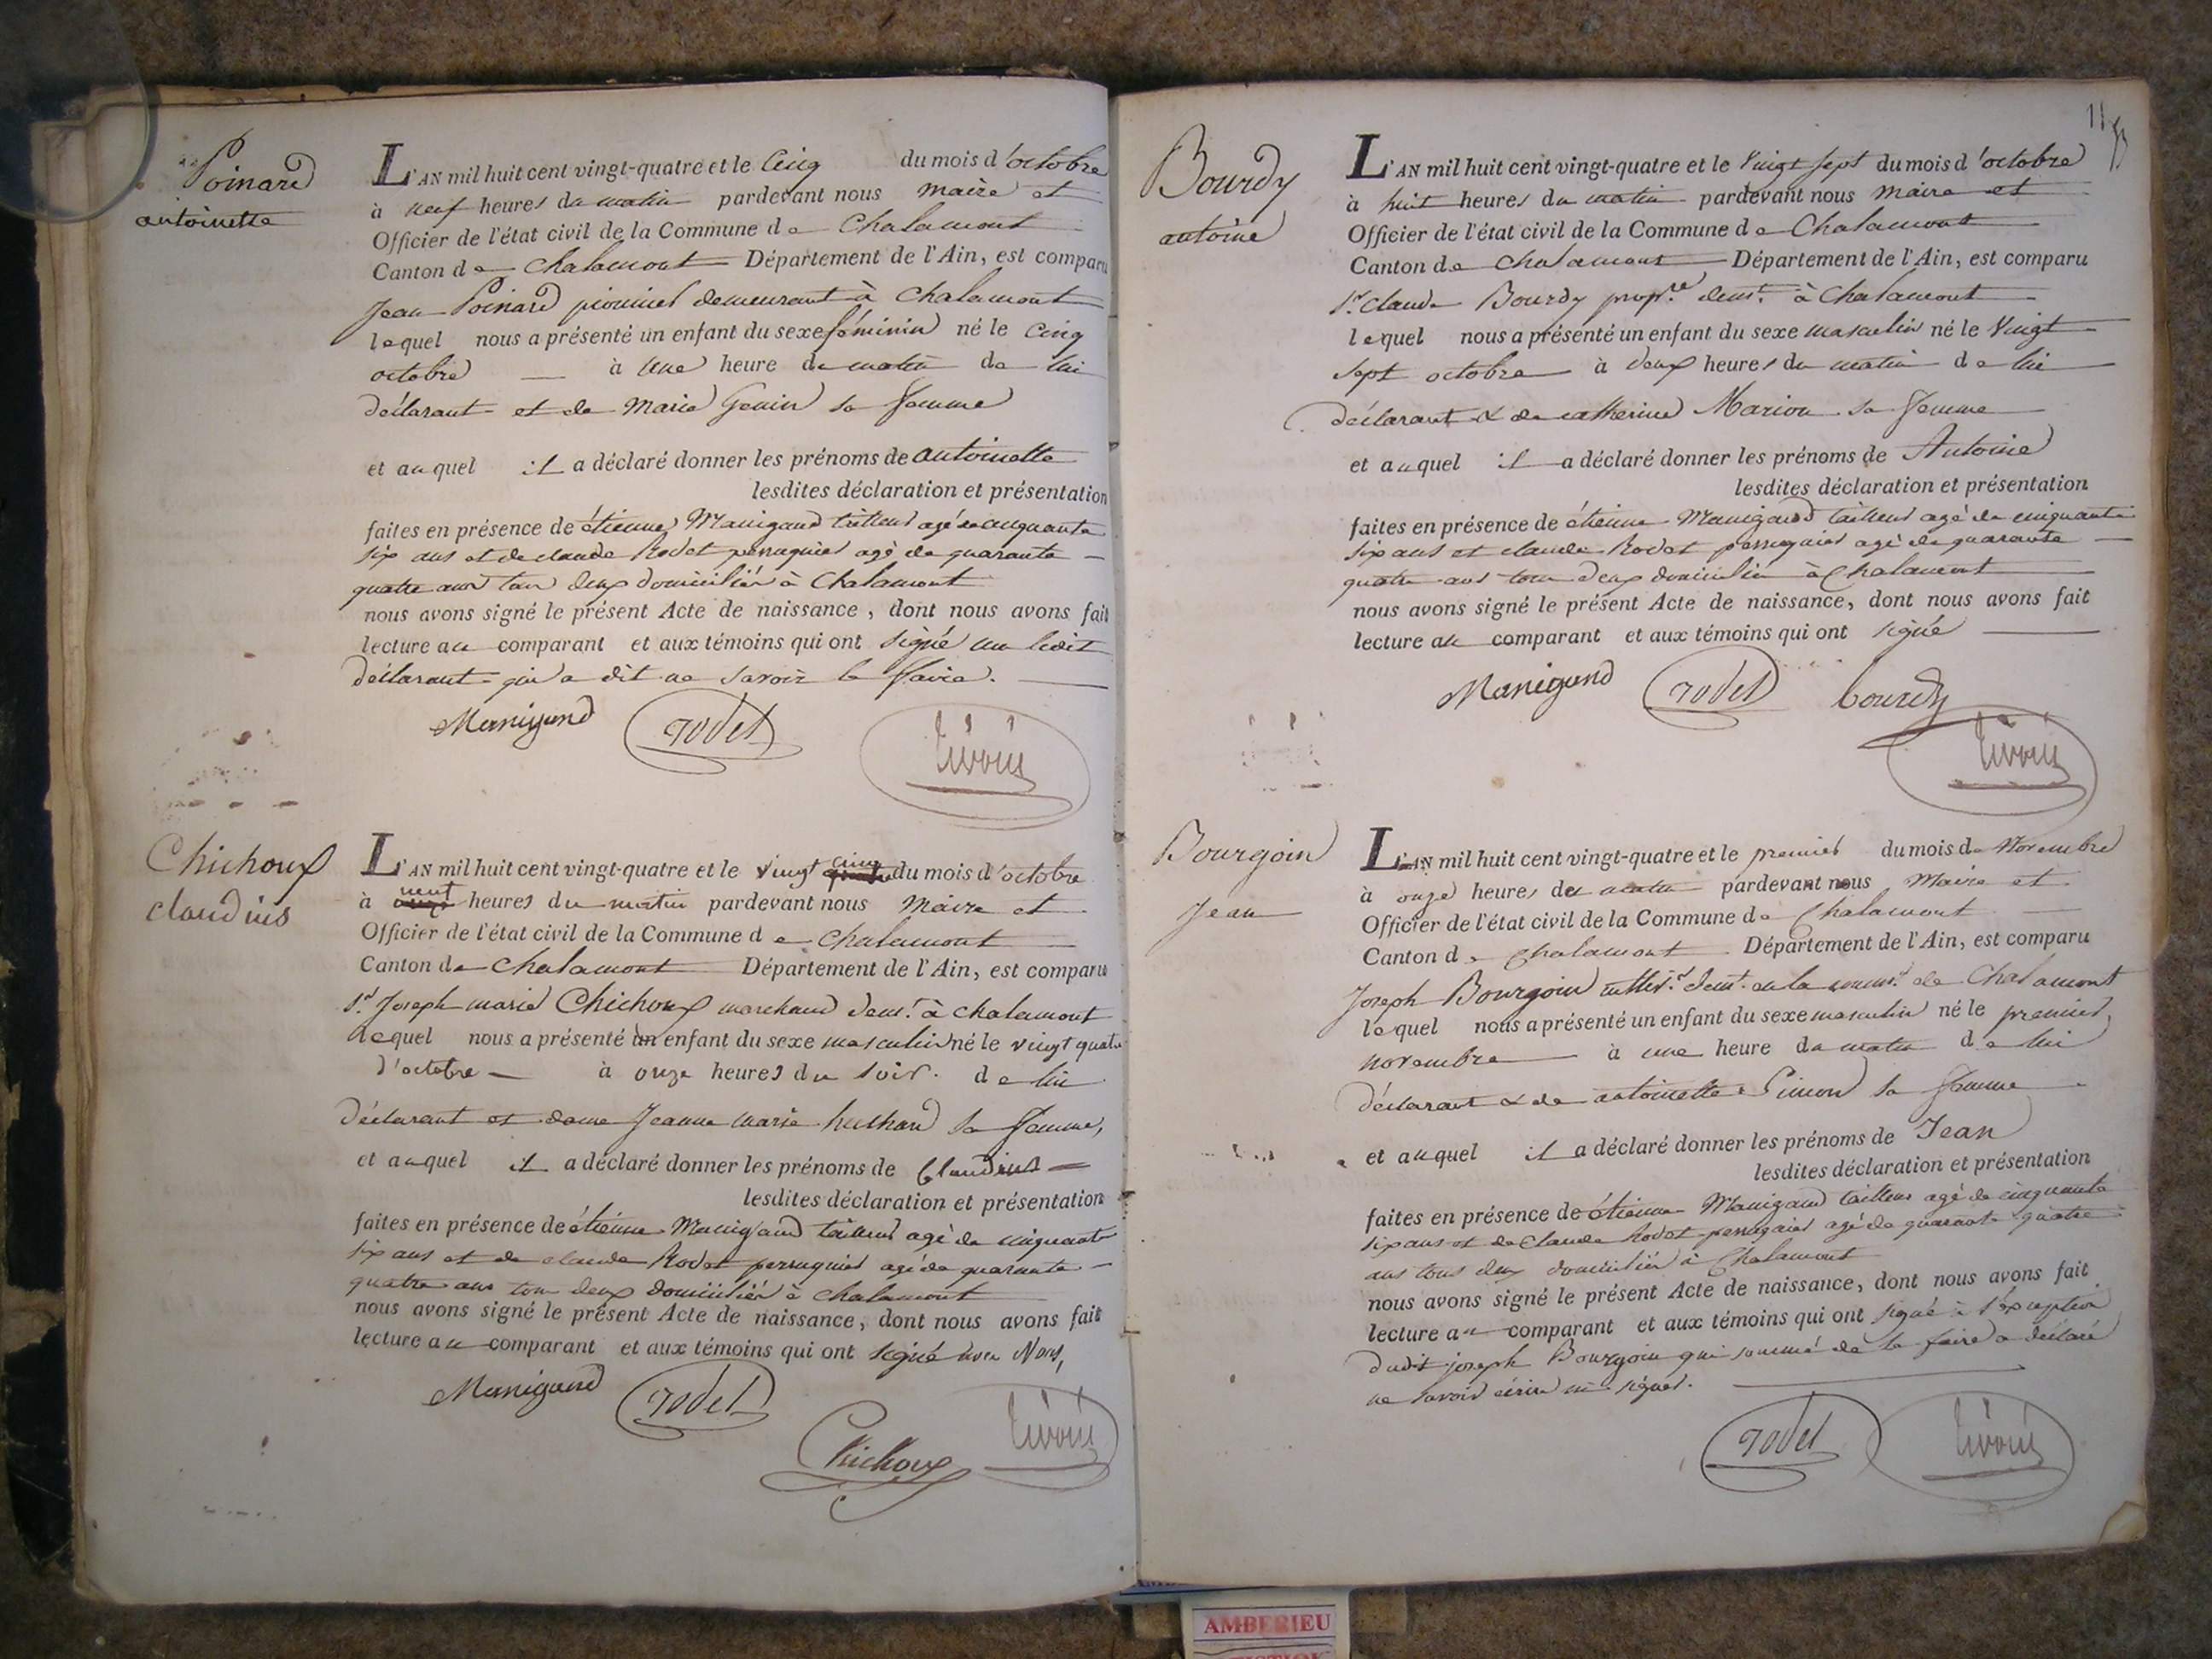 Poinard
antoinette
L'AN mil huit cent vingt-quatre et le Cinq du mois d'octobre
à neuf heures du matin pardevant nous maire et
Officier de l'état civil de la Commune de Chalamont
Canton de Chalamont Département de l'Ain, est comparu
Jean Poinard demeurant à Chalamont
lequel nous a présenté un enfant du sexe féminin né le cinq
octobre à une heure du matin de lui
déclarant et de Marie Genin sa femme
et auquel il a déclaré donner les prénoms de antoinette
lesdites déclaration et présentation
faites en présence de étienne Manigand tailleur agé de cinquante
six ans et de claude Rodet perruquier agé de quarante
quatre ans tous deux domiciliés à Chalamont
nous avons signé le présent Acte de naissance, dont nous avons fait
lecture au comparant et aux témoins qui ont signé ledit
déclarant qui a dit ne savoir le faire.
Manigand rodet
Chichoux
claudius
L'AN mil huit cent vingt-quatre et le vingt cinq du mois d'octobre
à neuf heures du matin pardevant nous Maire et
Officier de l'état civil de la Commune de Chalamont
Canton de Chalamont Département de l'Ain, est comparu
Sr. Joseph marie Chichoux marchand demt. à chalamont
lequel nous a présenté un enfant du sexe masculin né le vingt quatre
d'octobre à onze heures du soir. de lui
déclarant et dame Jeanne marie sa femme,
et auquel il a déclaré donner les prénoms de Claudius
lesdites déclaration et présentation
faites en présence de étienne Manigand tailleur agé de cinquante
six ans et de claude Rodet perruquier agé de quarante
quatre ans tous deux domiciliés à chalamont
nous avons signé le présent Acte de naissance, dont nous avons fait
lecture au comparant et aux témoins qui ont signé avec Nous,
Manigand rodet
Chichoux
11
Bourdy
antoine
L'AN mil huit cent vingt-quatre et le Vingt sept du mois d'octobre
à huit heures du matin pardevant nous maire et
Officier de l'état civil de la Commune de Chalamont
Canton de Chalamont Département de l'Ain, est comparu
Sr. claude Bourdy propre. demt. à Chalamont
lequel nous a présenté un enfant du sexe masculin né le Vingt
sept octobre à deux heures du matin de lui
déclarant & de catherine Marion sa femme
et auquel il a déclaré donner les prénoms de Antoine
lesdites déclaration et présentation
faites en présence de étienne Manigand tailleur agé de cinquante
six ans et claude Rodet perruquier agé de quarante
quatre ans tous deux domiciliés à Chalamont
nous avons signé le présent Acte de naissance, dont nous avons fait
lecture au comparant et aux témoins qui ont signé
Manigand rodet bourdy
Bourgoin
Jean
L'AN mil huit cent vingt-quatre et le premier du mois de Novembre
à onze heures du matin pardevant nous Maire et
Officier de l'état civil de la Commune de Chalamont
Canton de Chalamont Département de l'Ain, est comparu
Joseph Bourgoin demt. en la comm. de Chalamont
lequel nous a présenté un enfant du sexe masculin né le premier
novembre à une heure du matin de lui
déclarant & de antoinette Simon sa femme
et auquel il a déclaré donner les prénoms de Jean
lesdites déclaration et présentation
faites en présence de étienne Manigand tailleur agé de cinquante
six ans et de Claude Rodet perruquier agé de quarante quatre
ans tous deux domiciliés à Chalamont
nous avons signé le présent Acte de naissance, dont nous avons fait
lecture au comparant et aux témoins qui ont signé à l'exception
dudit joseph Bourgoin qui sommé de le faire a déclaré
ne savoir écrire ni signer.
rodet
AMBERIEU